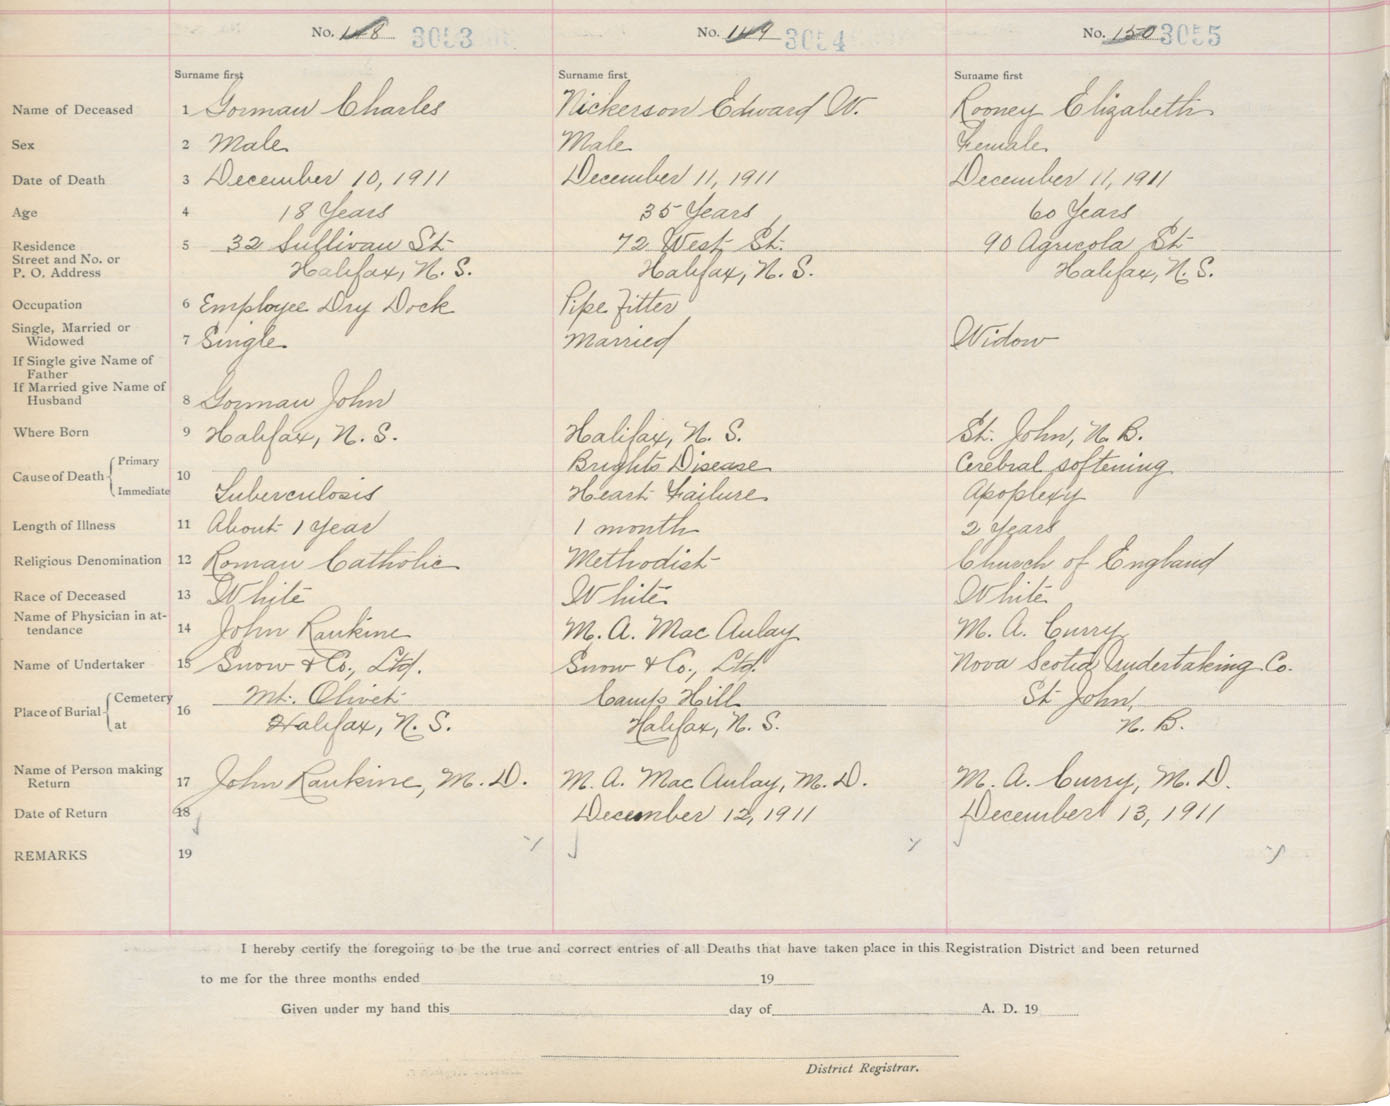 No. 148 3053 No. 149 3054 No. 150 3055
Surname first Surname first Surname first
Name of Deceased 1 Gorman Charles Nickerson Edward W. Rooney Elizabeth
Sex 2 Male Male Female
Date of Death 3 December 10, 1911 December 11, 1911 December 11, 1911
Age 4 18 Years 35 Years 60 Years
Residence 5 32 Sullivan St. 72 West St. 90 Agricola St
Street and No. or
P. O. Address Halifax, N. S. Halifax, N. S. Halifax, N. S.
Occupation 6 Employee Dry Dock Pipe Fitter
Single, Married or
Widowed 7 Single Married Widow
If Single give Name of
Father
If Married give Name of
Husband 8 Gorman John
Where Born 9 Halifax, N. S. Halifax, N. S. St. John, N. B.
Cause of Death Primary 10 Brights Disease Cerebral softening
Immediate Tuberculosis Heart Failure Apoplexy
Length of Illness 11 About 1 year 1 month 2 years
Religious Denomination 12 Roman Catholic Methodist Church of England
Race of Deceased 13 White White White
Name of Physician in at-
tendance 14 John Rankine M. A. MacAulay M. A. Curry
Name of Undertaker 15 Snow & Co., Ltd. Snow & Co., Ltd. Nova Scotia Undertaking Co.
Place of Burial Cemetery 16 Mt. Olivet Camp Hill St John,
at Halifax, N. S. Halifax, N. S. N. B.
Name of Person making
Return 17 John Rankine, M. D. M. A. MacAulay, M. D. M. A. Curry, M. D.
Date of Return 18 December 12, 1911 December 13, 1911
REMARKS 19
I hereby certify the foregoing to be the true and correct entries of all Deaths that have taken place in this Registration District and been returned
to me for the three months ended 19
Given under my hand this day of A. D. 19
District Registrar.